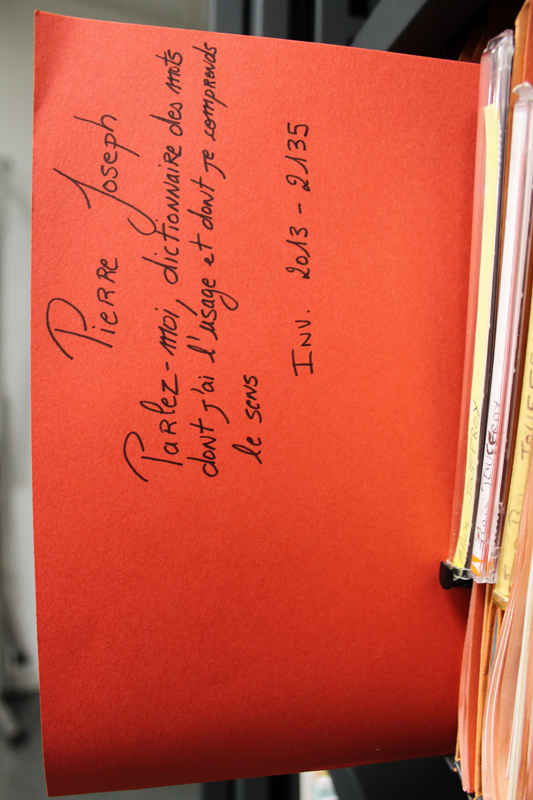 Pierre Joseph
Parlez-moi, dictionnaire des mots
dont j'ai l'usage et dont je comprends
le sens
Inv. 2013 - 2135